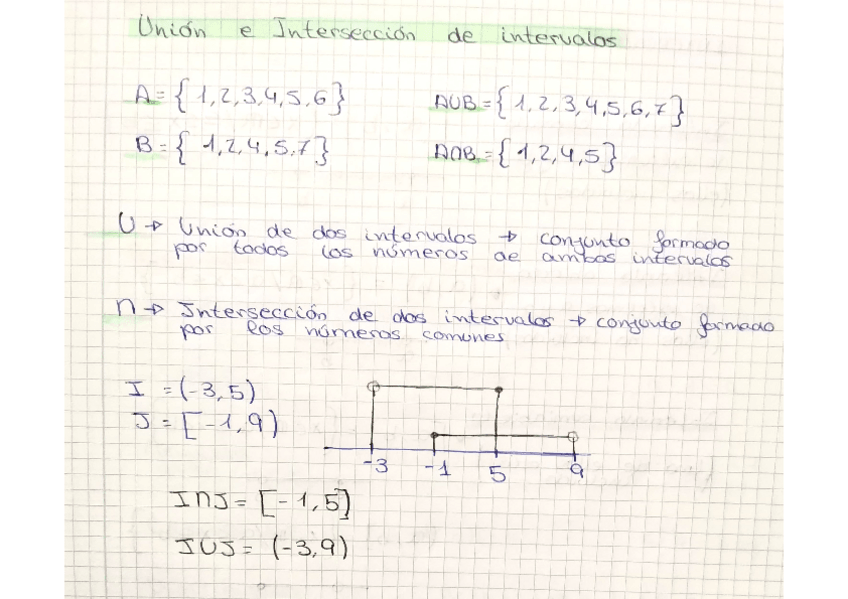 Unión e Intersección de intervalos
A = { 1,2,3,4,5,6} A∪B = { 1,2,3,4,5,6,7}
B = { 1,2,4,5,7} A∩B = { 1,2,4,5}
U → Unión de dos intervalos → conjunto formado
por todos los números de ambos intervalos
∩ → Intersección de dos intervalos → conjunto formado
por los números comunes
I = (-3,5)
J = [-1,9)
-3 -1 5 9
I∩J = [-1,5]
I∪J = (-3,9)